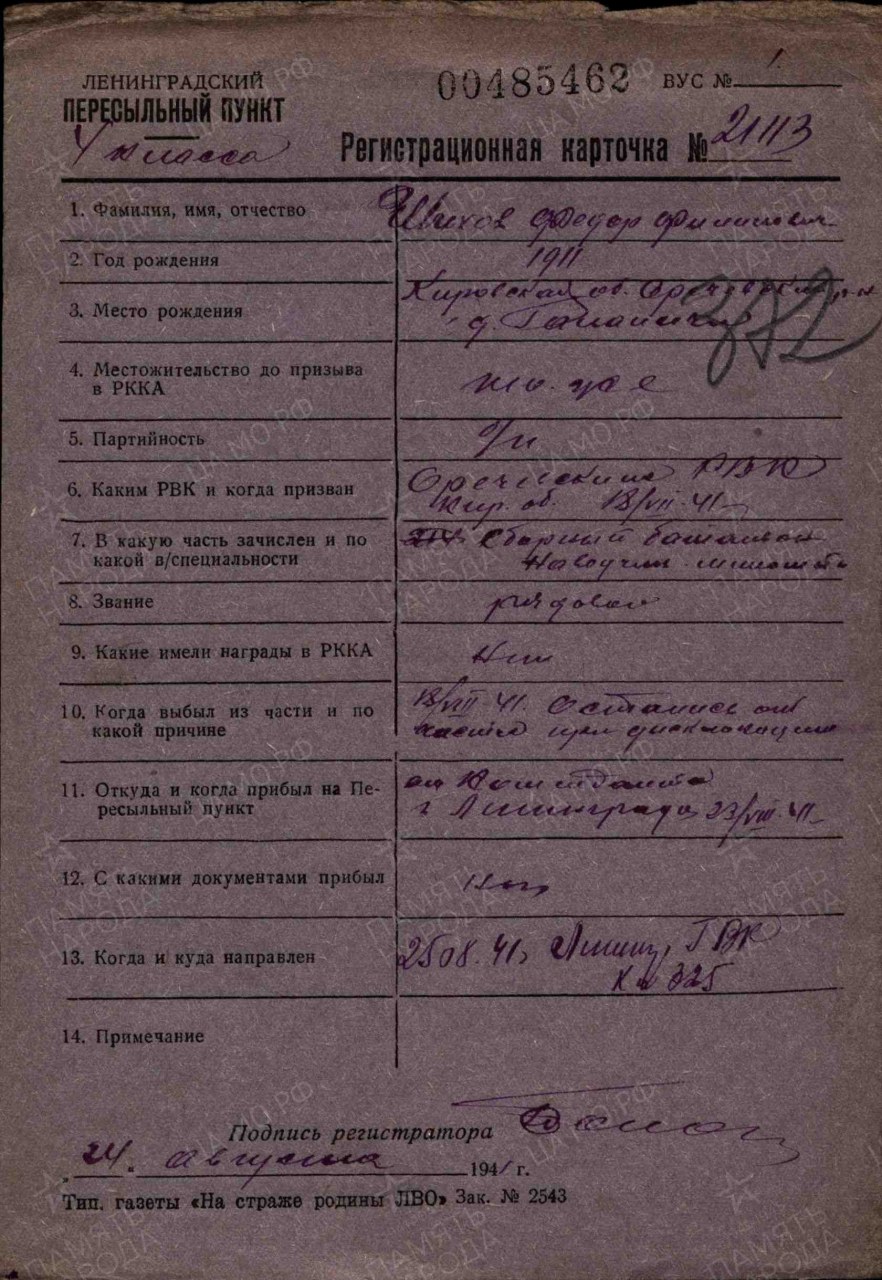 ЛЕНИНГРАДСКИЙ
ПЕРЕСЫЛЬНЫЙ ПУНКТ
4 класса
00485462 ВУС № 1
Регистрационная карточка № 21113
1. Фамилия, имя, отчество Шихов Федор Филиппович
2. Год рождения 1911
3. Место рождения Кировская об.
д.
372
4. Местожительство до призыва
в РККА там же
5. Партийность б/п
6. Каким РВК и когда призван РВК
Кир. об. 18/VII-41
7. В какую часть зачислен и по
какой в/специальности Сборный батальон
Наводчик миномета
8. Звание рядовой
9. Какие имели награды в РККА Нет
10. Когда выбыл из части и по
какой причине 18/VIII 41. Остались от
части при дислокации
11. Откуда и когда прибыл на Пе-
ресыльный пункт от Коменданта
г Ленинграда 23/VIII-41
12. С какими документами прибыл
13. Когда и куда направлен 25 08. 41 Ленинг. ГВК
14. Примечание
Подпись регистратора
„24“ августа 1941 г.
Тип. газеты «На страже родины ЛВО» Зак. № 2543
ПАМЯТЬ НАРОДА
ЦА МО.РФ